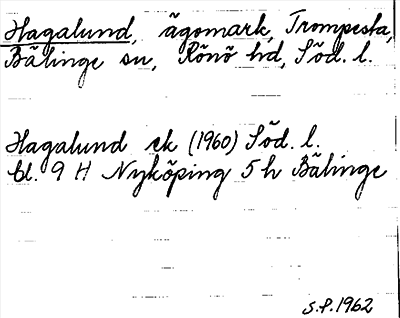 Hagalund, ägomark, Trompesta,
Bälinge sn, Rönö hd, Söd. l.
Hagalund ek (1960) Söd. l.
bl. 9 H Nyköping 5 h Bälinge
S.P. 1962